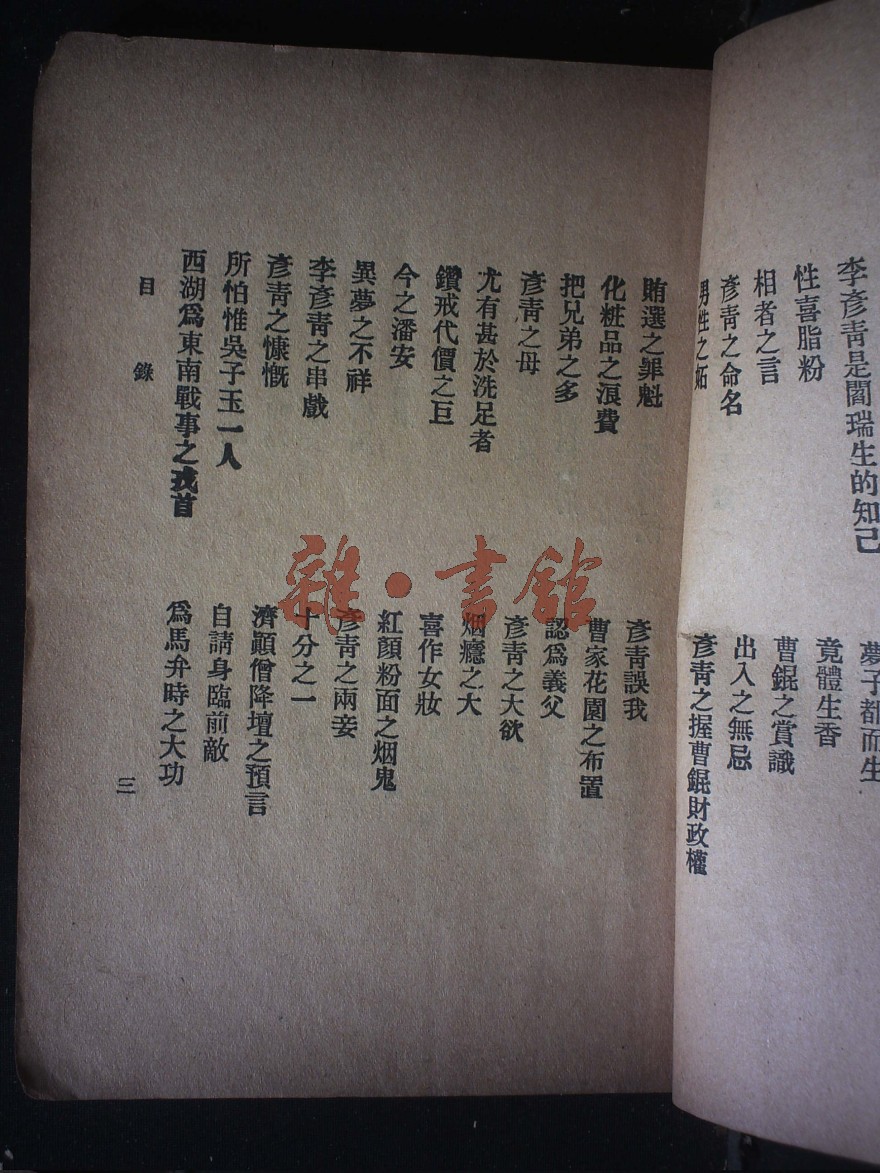 李彥青是閻瑞生的知己
性喜脂粉
相者之言
彥青之命名
男性之妬
夢子都而生
竟體生香
曹錕之賞識
出入之無忌
彥青之握曹錕財政權
賄選之罪魁
化粧品之浪費
把兄弟之多
彥青之母
尤有甚於洗足者
鑽戒代價之巨
今之潘安
異夢之不祥
李彥青之串戲
彥青之慷慨
所怕惟吳子玉一人
西湖爲東南戰事之戎首
彥青誤我
曹家花園之布置
認爲義父
彥青之大欲
烟癮之大
喜作女妝
紅顏粉面之烟鬼
彥青之兩妾
十分之一
濟顚僧降壇之預言
自請身臨前敵
爲馬弁時之大功
目錄
三
雜·書館